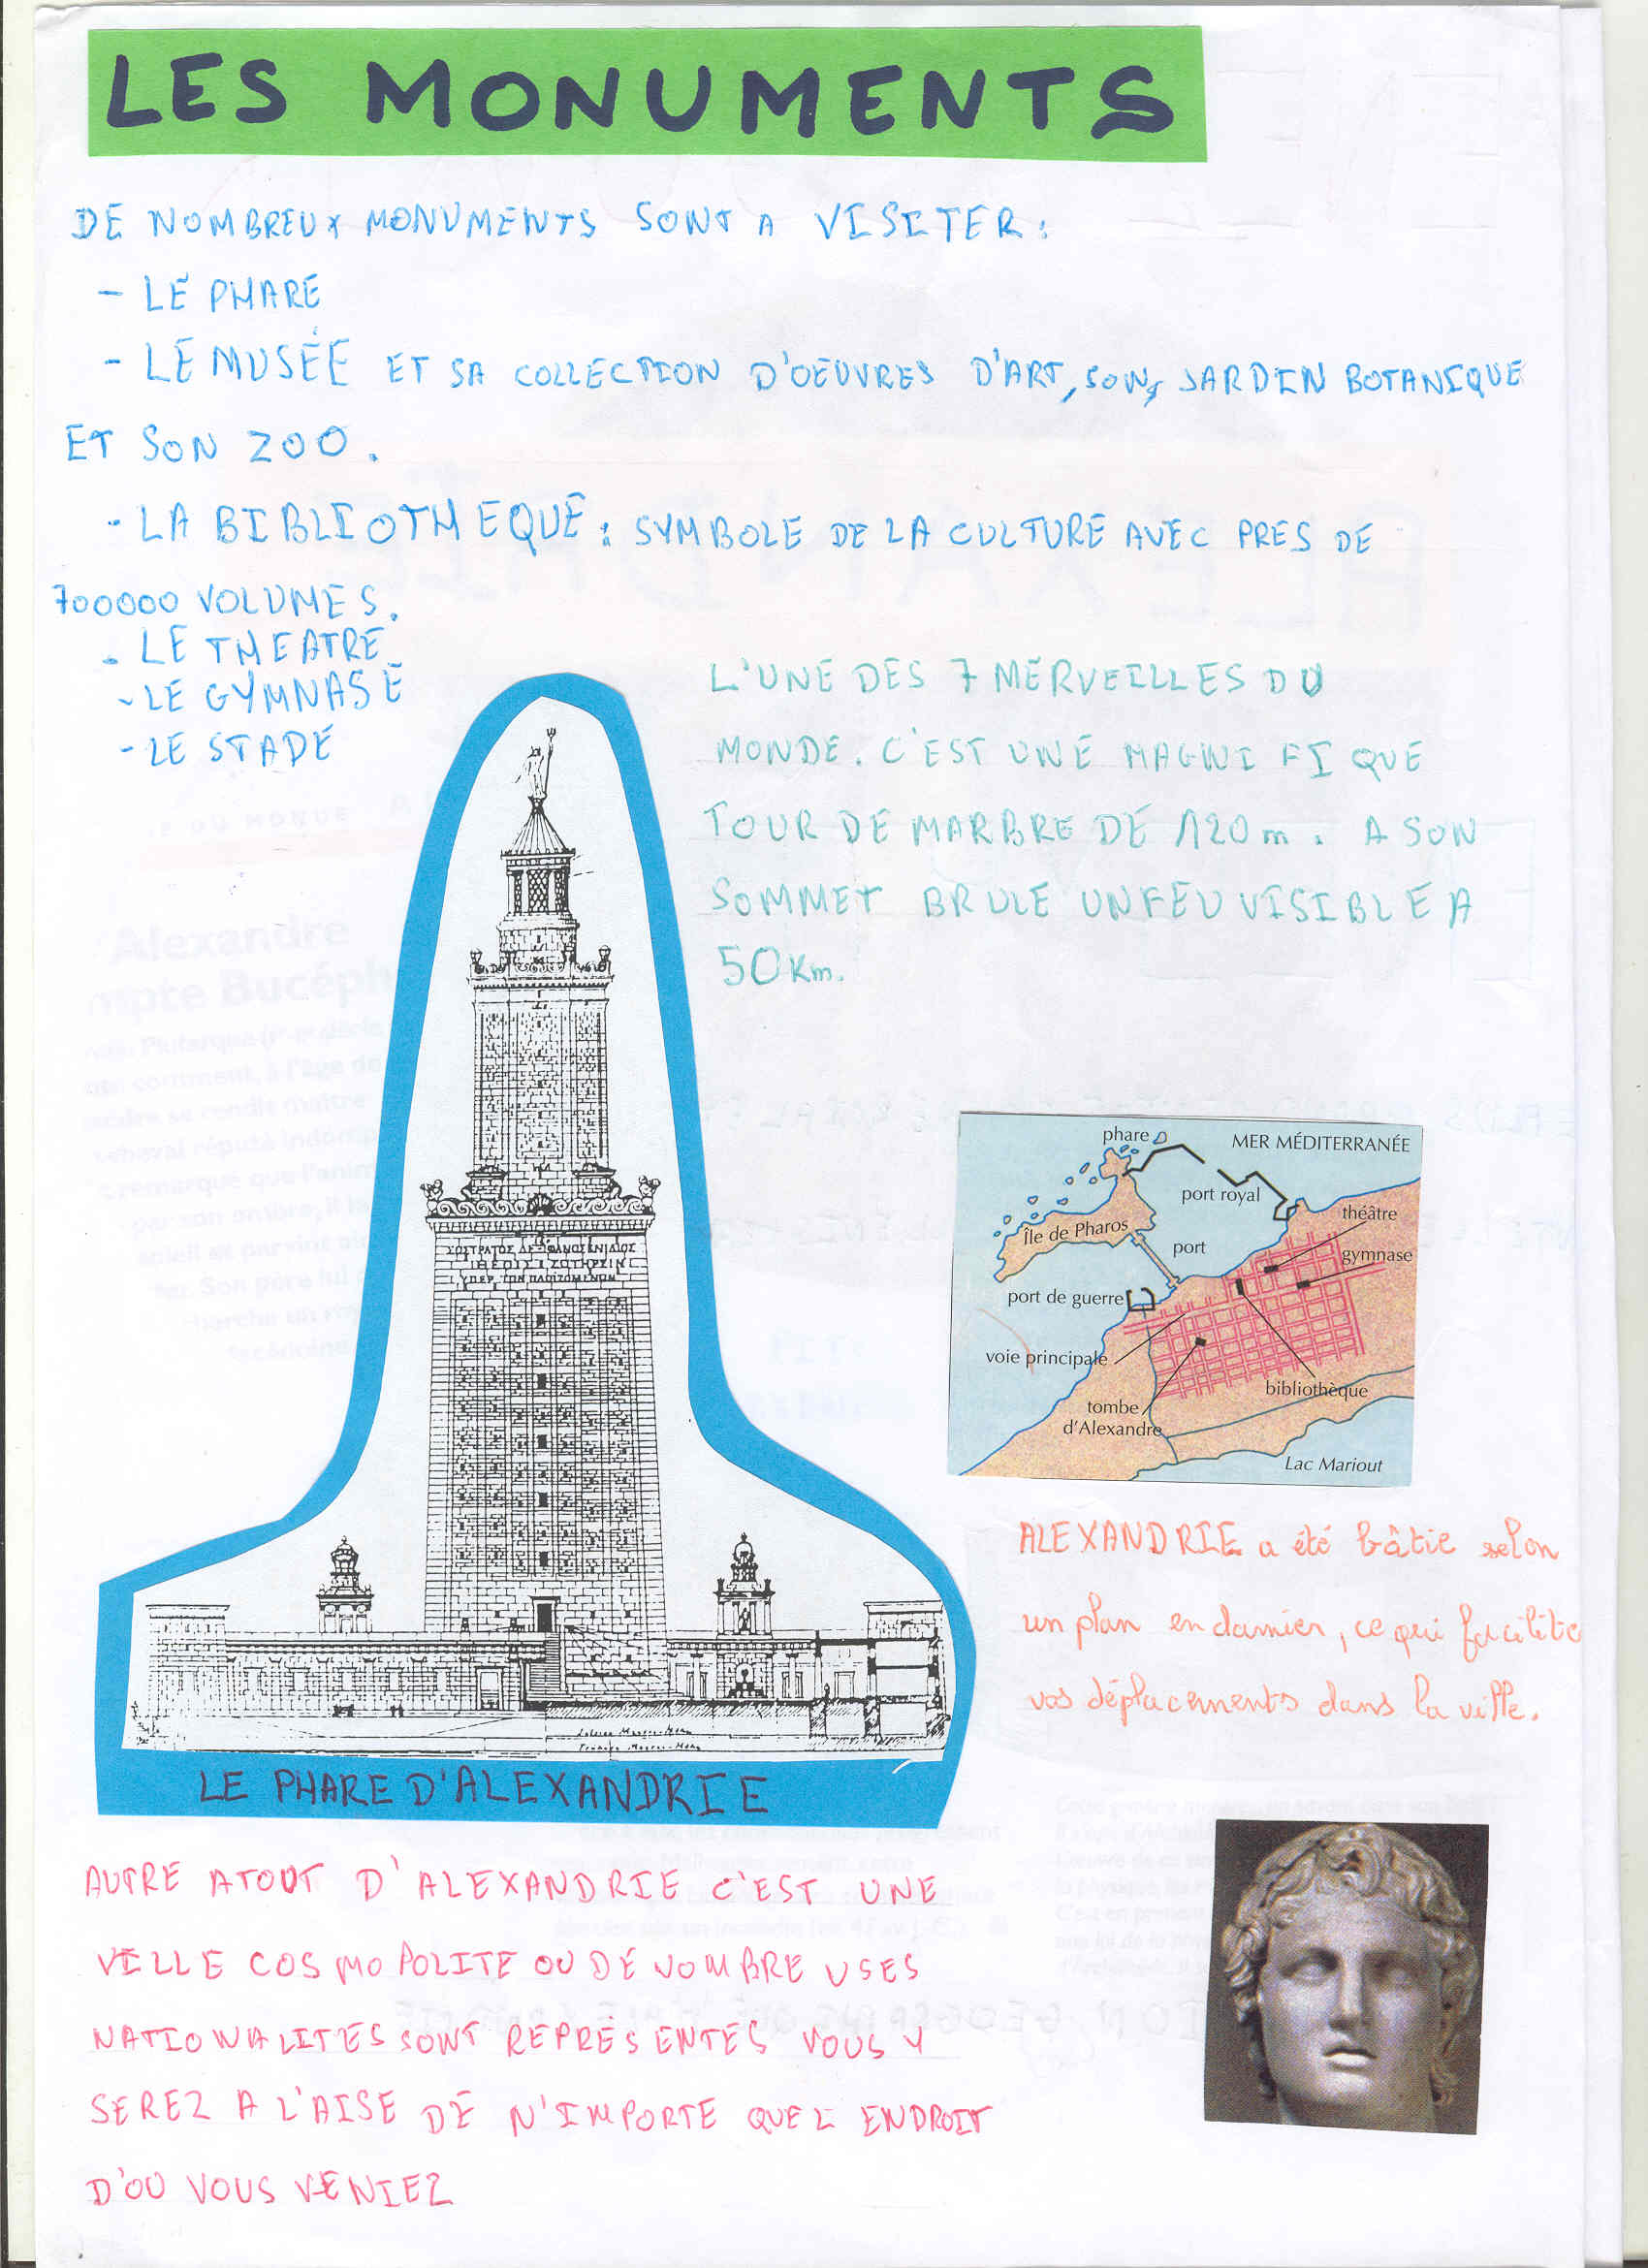 LES MONUMENTS
DE NOMBREUX MONUMENTS SONT A VISITER :
- LE PHARE
- LE MUSÉE ET SA COLLECTION D'OEUVRES D'ART, SON JARDIN BOTANIQUE
ET SON ZOO.
- LA BIBLIOTHEQUE : SYMBOLE DE LA CULTURE AVEC PRES DE
700000 VOLUMES.
- LE THEATRE
- LE GYMNASE
- LE STADE
L'UNE DES 7 MERVEILLES DU
MONDE. C'EST UNE MAGNIFIQUE
TOUR DE MARBRE DE 120 m. A SON
SOMMET BRULE UN FEU VISIBLE A
50 Km.
phare
MER MÉDITERRANÉE
port royal
théâtre
Île de Pharos
port
gymnase
port de guerre
voie principale
bibliothèque
tombe
d'Alexandre
Lac Mariout
ALEXANDRIE a été bâtie selon
un plan en damier, ce qui facilite
vos déplacements dans la ville.
LE PHARE D'ALEXANDRIE
AUTRE ATOUT D'ALEXANDRIE C'EST UNE
VILLE COSMOPOLITE OU DE NOMBREUSES
NATIONALITES SONT REPRESENTES VOUS Y
SEREZ A L'AISE DE N'IMPORTE QUEL ENDROIT
D'OU VOUS VENIEZ